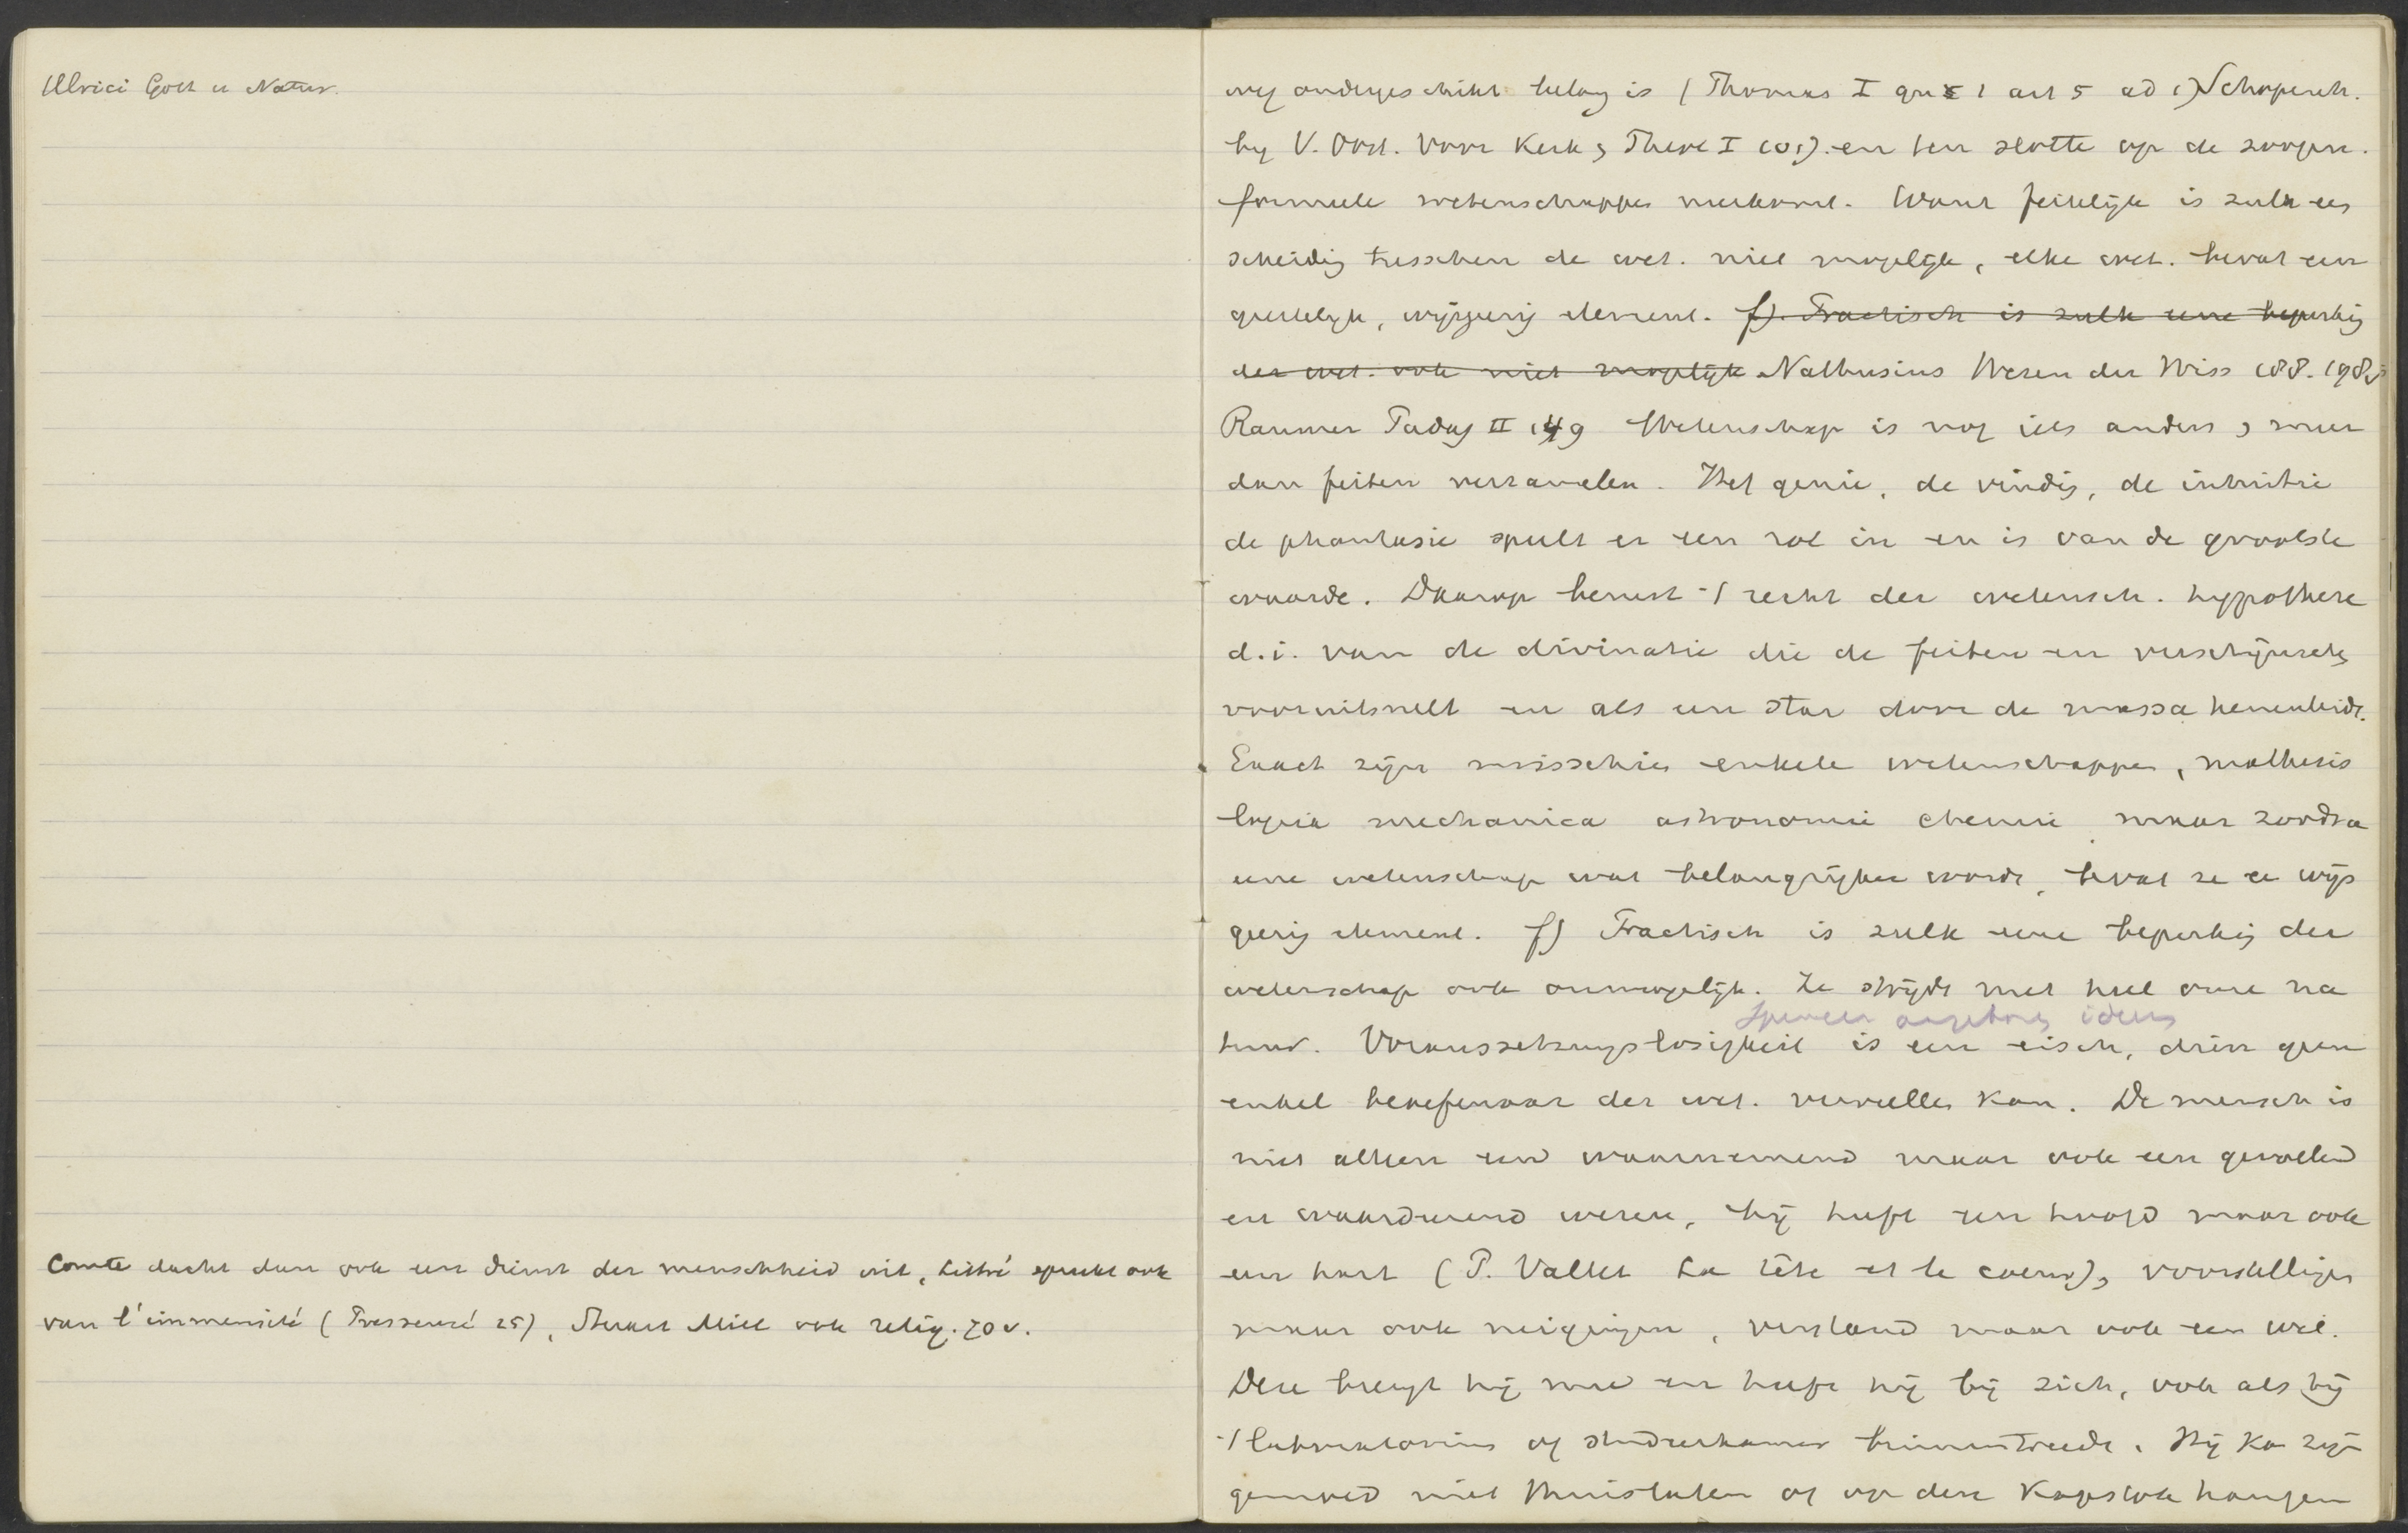 Ulrici Gott u Natur.
Comte dacht dan ook een dienst der menschheid uit, Littré spreekt ook
van l'immensité (Pressensé 25), Stuart Mill ook relig. 70 v.
ondergeschikt belang is (Thomas I qu 1 art 5 ad 1) Schopenh.
by V. Oost. Voor Kerk & Theol I 101). en ten slotte op de zoogen.
formeele wetenschappen neerkomt. Want feitelijk is zulk een
scheidig tusschen de wet. niet mogelijk, elke wet. bevat een
geestelijk, wijsgeerig element. f). Practisch is zulk eene beperkig
der wet. ook niet mogelijk Nathusius Wesen der Wiss 188. 198,
Raumer Padag II 149 Wetenschap is nog iets anders & meer
dan feiten verzamelen. Het genie, de vindig, de intuitie
de phantasie speelt er een rol in en is van de grootste
waarde. Daarop berust 't recht der wetensch. hypothese
d.i. van de divinatie die de feiten en verschijnsels
vooruitsnelt en als een star door de massa henenleidt.
Exact zijn misschien enkele wetenschappen, mathesis
logica mechanica astronomie chemie maar zoodra
eene wetenschap wat belangrijker wordt, bevat ze ee wijs
geerig element. f) Practisch is zulk eene beperkig der
wetenschap ook onmogelijk. Ze strijdt met heel onze na
Spencer aangeboren ideeen
tuur. Voraussetzungslosigkeit is een eisch, dien geen
enkel beoefenaar der wet. vervullen kan. De mensch is
niet alleen een waarnemend maar ook een gevoelend
en waardeerend wezen, hij heeft een hoofd maar ook
een hart (P. Vallet La tête et le coeur), voorstelligen
maar ook neigingen, verstand maar ook een wil.
Deze brengt hij mee en heeft hij bij zich, ook als hij
't laboratorium of studeerkamer binnentreedt. Hij ka zijn
gemoed niet thuislaten of op dese kapstok hangen